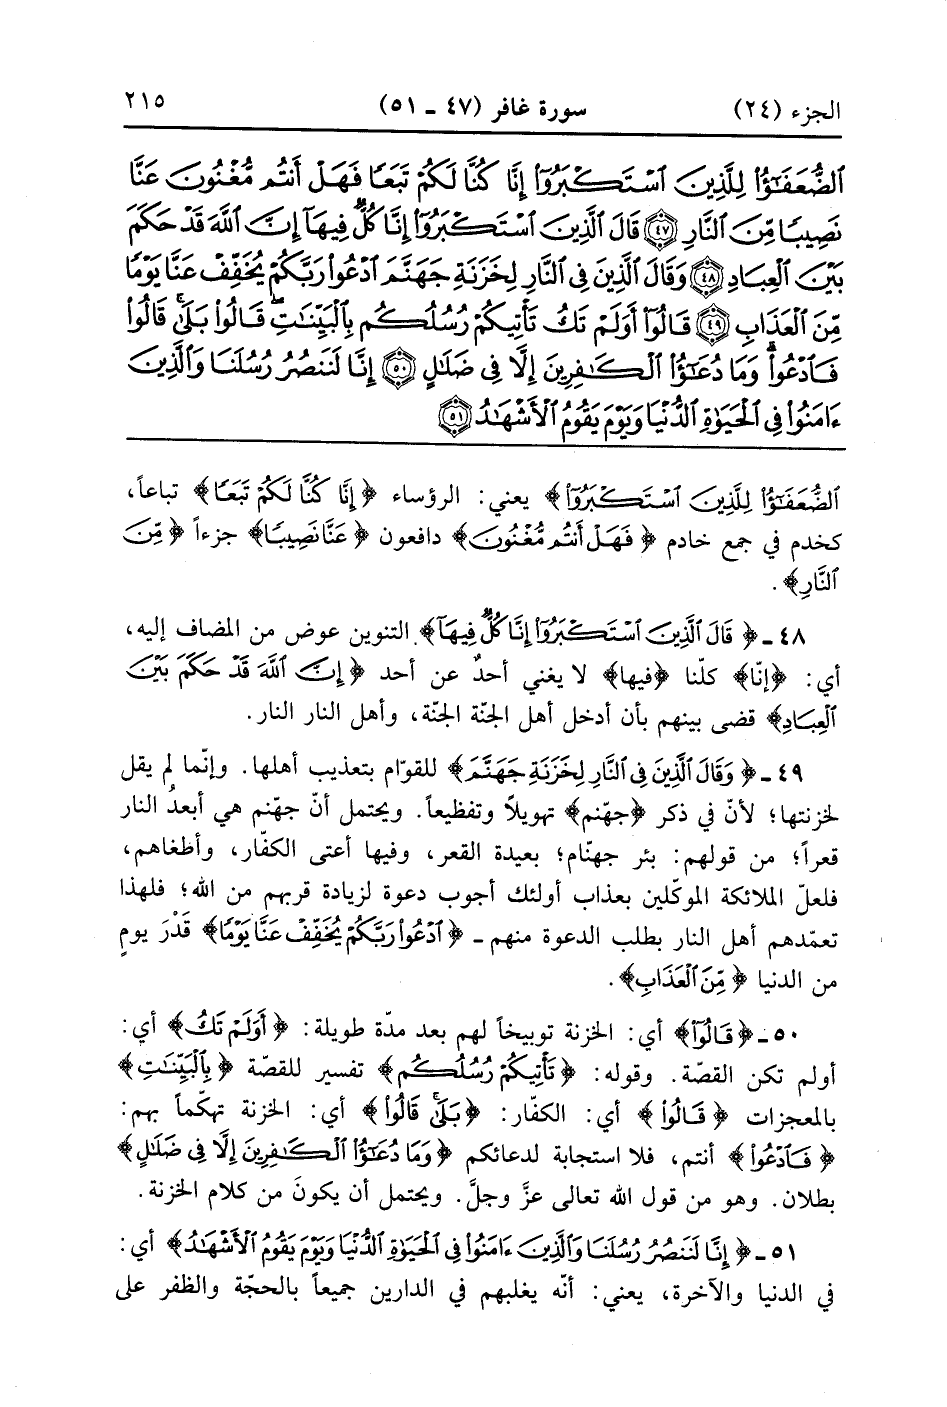 الجزء (٢٤) سورة غافر (٤٧ ـ ٥١) ٢١٥
ٱلضُّعَفَٰٓؤُا۟ لِلَّذِينَ ٱسْتَكْبَرُوٓا۟ إِنَّا كُنَّا لَكُمْ تَبَعًا فَهَلْ أَنتُم مُّغْنُونَ عَنَّا
نَصِيبًا مِّنَ ٱلنَّارِ ٤٧ قَالَ ٱلَّذِينَ ٱسْتَكْبَرُوٓا۟ إِنَّا كُلٌّ فِيهَآ إِنَّ ٱللَّهَ قَدْ حَكَمَ
بَيْنَ ٱلْعِبَادِ ٤٨ وَقَالَ ٱلَّذِينَ فِى ٱلنَّارِ لِخَزَنَةِ جَهَنَّمَ ٱدْعُوا۟ رَبَّكُمْ يُخَفِّفْ عَنَّا يَوْمًا
مِّنَ ٱلْعَذَابِ ٤٩ قَالُوٓا۟ أَوَلَمْ تَكُ تَأْتِيكُمْ رُسُلُكُم بِٱلْبَيِّنَٰتِ ۖ قَالُوا۟ بَلَىٰ ۚ قَالُوا۟
فَٱدْعُوا۟ ۗ وَمَا دُعَٰٓؤُا۟ ٱلْكَٰفِرِينَ إِلَّا فِى ضَلَٰلٍ ٥٠ إِنَّا لَنَنصُرُ رُسُلَنَا وَٱلَّذِينَ
ءَامَنُوا۟ فِى ٱلْحَيَوٰةِ ٱلدُّنْيَا وَيَوْمَ يَقُومُ ٱلْأَشْهَٰدُ ٥١
ٱلضُّعَفَٰٓؤُا۟ لِلَّذِينَ ٱسْتَكْبَرُوٓا۟﴾ يعني: الرؤساء ﴿إِنَّا كُنَّا لَكُمْ تَبَعًا﴾ تباعاً،
كخدم في جمع خادم ﴿فَهَلْ أَنتُم مُّغْنُونَ﴾ دافعون ﴿عَنَّا نَصِيبًا﴾ جزءاً ﴿مِّنَ
ٱلنَّارِ﴾.
٤٨ ـ ﴿قَالَ ٱلَّذِينَ ٱسْتَكْبَرُوٓا۟ إِنَّا كُلٌّ فِيهَآ﴾. التنوين عوض من المضاف إليه،
أي: ﴿إنّا﴾ كلّنا ﴿فيها﴾ لا يغني أحدٌ عن أحد ﴿إِنَّ ٱللَّهَ قَدْ حَكَمَ بَيْنَ
ٱلْعِبَادِ﴾ قضى بينهم بأن أدخل أهل الجنّة الجنّة، وأهل النار النار.
٤٩ ـ ﴿وَقَالَ ٱلَّذِينَ فِى ٱلنَّارِ لِخَزَنَةِ جَهَنَّمَ﴾ للقوّام بتعذيب أهلها. وإنّما لم يقل
لخزنتها؛ لأنّ في ذكر ﴿جهّنم﴾ تهويلاً وتفظيعاً. ويحتمل أنّ جهّنم هي أبعدُ النار
قعراً؛ من قولهم: بئر جهنّام؛ بعيدة القعر، وفيها أعتى الكفّار، وأطغاهم،
فلعلّ الملائكة الموكّلين بعذاب أولئك أجوب دعوة لزيادة قربهم من الله؛ فلهذا
تعمّدهم أهل النار بطلب الدعوة منهم ـ ﴿ٱدْعُوا۟ رَبَّكُمْ يُخَفِّفْ عَنَّا يَوْمًا﴾ قَدْرَ يومٍ
من الدنيا ﴿مِّنَ ٱلْعَذَابِ﴾.
٥٠ ـ ﴿قَالُوٓا۟﴾ أي: الخزنة توبيخاً لهم بعد مدّة طويلة: ﴿أَوَلَمْ تَكُ﴾ أي:
أولم تكن القصّة. وقوله: ﴿تَأْتِيكُمْ رُسُلُكُم﴾ تفسير للقصّة ﴿بِٱلْبَيِّنَٰتِ﴾
بالمعجزات ﴿قَالُوا۟﴾ أي: الكفّار: ﴿بَلَىٰ ۚ قَالُوا۟﴾ أي: الخزنة تهكّماً بهم:
﴿فَٱدْعُوا۟﴾ أنتم، فلا استجابة لدعائكم ﴿وَمَا دُعَٰٓؤُا۟ ٱلْكَٰفِرِينَ إِلَّا فِى ضَلَٰلٍ﴾
بطلان. وهو من قول الله تعالى عزَّ وجلَّ. ويحتمل أن يكونَ من كلام الخزنة.
٥١ ـ ﴿إِنَّا لَنَنصُرُ رُسُلَنَا وَٱلَّذِينَ ءَامَنُوا۟ فِى ٱلْحَيَوٰةِ ٱلدُّنْيَا وَيَوْمَ يَقُومُ ٱلْأَشْهَٰدُ﴾ أي:
في الدنيا والآخرة، يعني: أنّه يغلبهم في الدارين جميعاً بالحجّة والظفر على